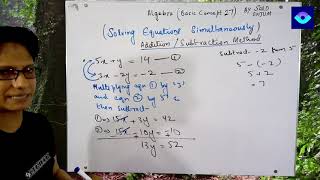 Algebra (Basic Concept 27) BY SYED
(Solving Equations Simultaneously)
Addition / Subtraction Method
5x + y = 14 — ①
3x - 2y = -2 — ②
Multiplying eqn ① by '3'
and eqn ② by '5' &
then subtract-
①⇒ 15x + 3y = 42
②⇒ 15x - 10y = -10
13y = 52
Subtract -2 from 5
5 - (-2)
5 + 2
= 7